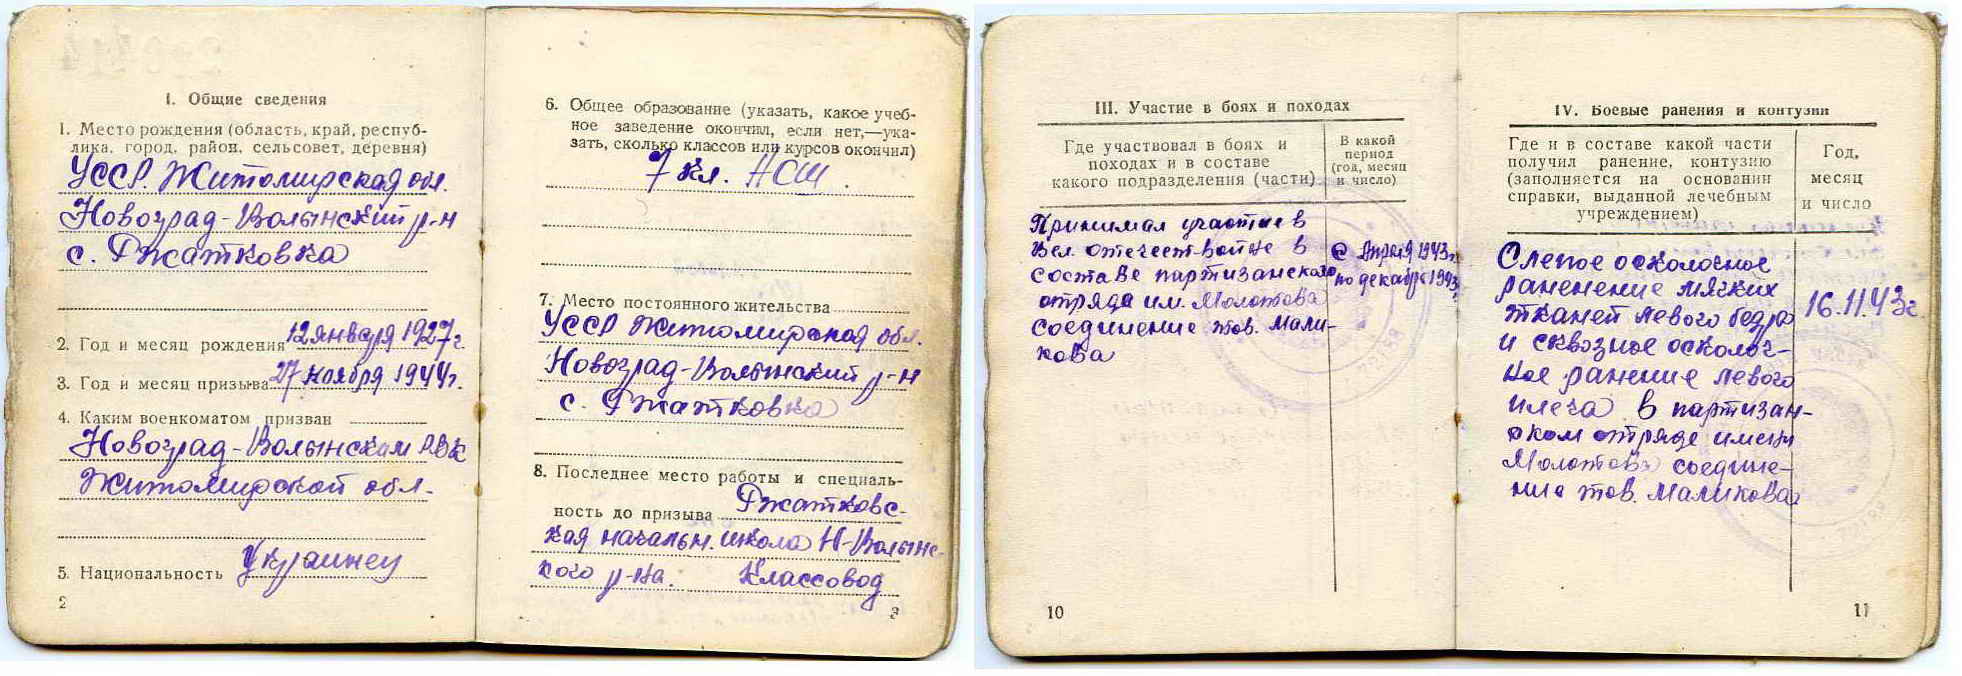 1. Общие сведения
1. Место рождения (область, край, респуб-
лика, город, район, сельсовет, деревня)
УССР. Житомирская обл.
Новоград-Волынский р-н
с. Ржатковка
2. Год и месяц рождения 12 января 1927 г.
3. Год и месяц призыва 27 ноября 1944 г.
4. Каким военкоматом призван
Новоград-Волынским РВК
Житомирской обл.
5. Национальность Украинец
2
6. Общее образование (указать, какое учеб-
ное заведение окончил, если нет,—ука-
зать, сколько классов или курсов окончил)
7 кл. НСШ.
7. Место постоянного жительства
УССР Житомирская обл.
Новоград-Волынский р-н
с. Ржатковка
8. Последнее место работы и специаль-
ность до призыва Ржатковс-
кая начальн. школа Н-Волынс-
кого р-на. Классовод
3
III. Участие в боях и походах
Где участвовал в боях и
походах и в составе
какого подразделения (части)
В какой
период
(год, месяц
и число)
Принимал участие в
Вел. отечест. войне в
составе партизанского
отряда им. Молотова
соединение тов. Мали-
кова
С Апреля 1943 г.
по декабрь 1943 г.
10
IV. Боевые ранения и контузии
Где и в составе какой части
получил ранение, контузию
(заполняется на основании
справки, выданной лечебным
учреждением)
Год,
месяц
и число
Слепое осколочное
раненение мягких
тканей левого бедра
и сквозное осколоч-
ное ранение левого
плеча в партизан-
ском отряде имени
Молотова соедине-
ние тов. Маликова
16.11.43г.
11